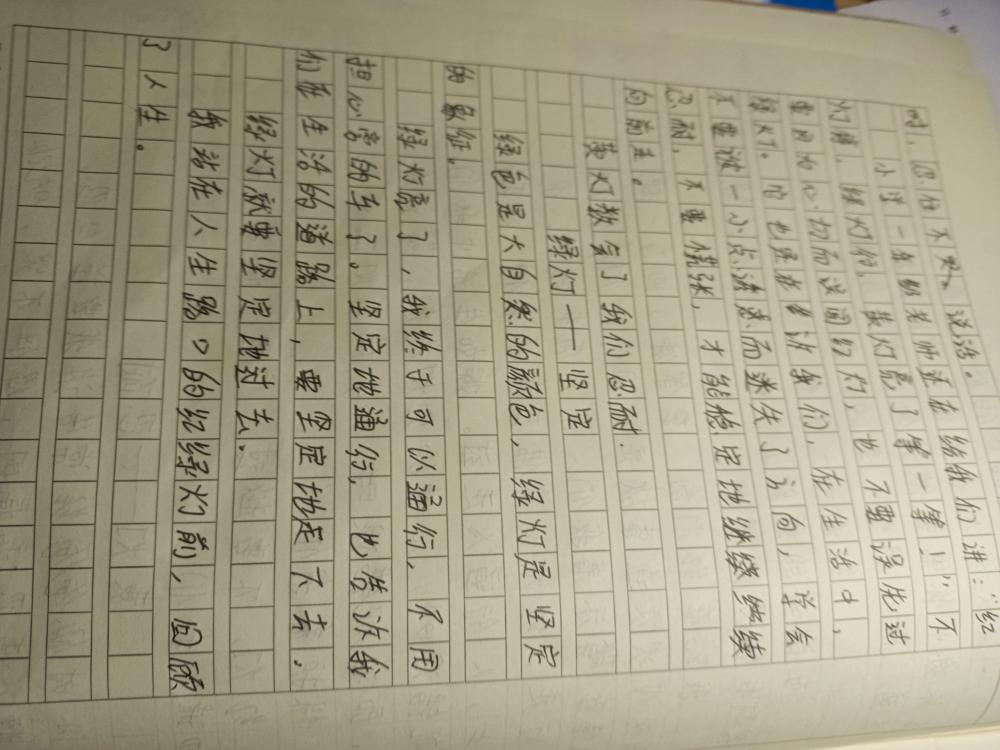 时，忍住不哭、说话。
小学一年级老师还在给我们讲：“红
灯停，绿灯行，黄灯亮了等一等！”不
要因为心切而误闯红灯，也不要误先过
绿灯。它也是告诉我们，在生活中，
不要被一小点诱惑而迷失了方向，学会
忍耐，不要慌张，才能稳定地继续继续
向前走。
黄灯教会了我们忍耐．
绿灯——坚定
绿色是大自然的颜色，绿灯是坚定
的象征．
绿灯亮了，我终于可以通行，不用
担心旁的车了。坚定地通行，也告诉我
们在生活的道路上，要坚定地走下去．
绿灯就要坚定地过去．
我站在人生路口的红绿灯前，回顾
了人生。